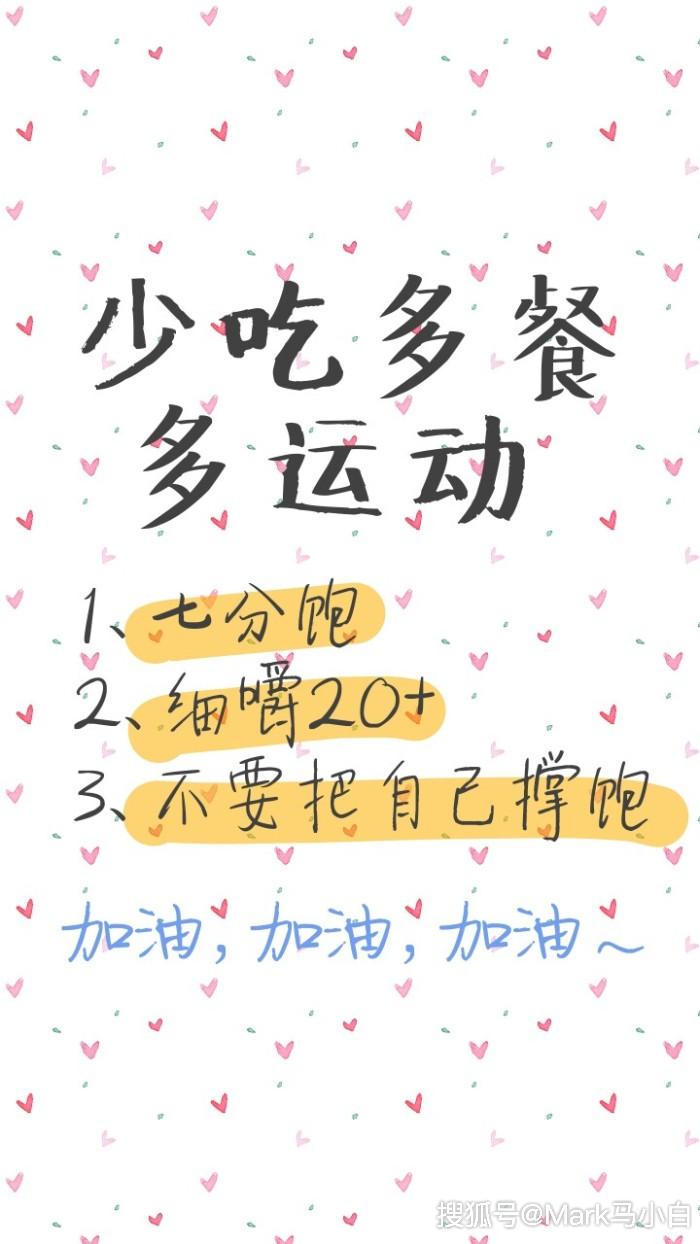 少吃多餐
多运动
1、七分饱
2、细嚼20+
3、不要把自己撑饱
加油，加油，加油～
搜狐号@Mark马小白